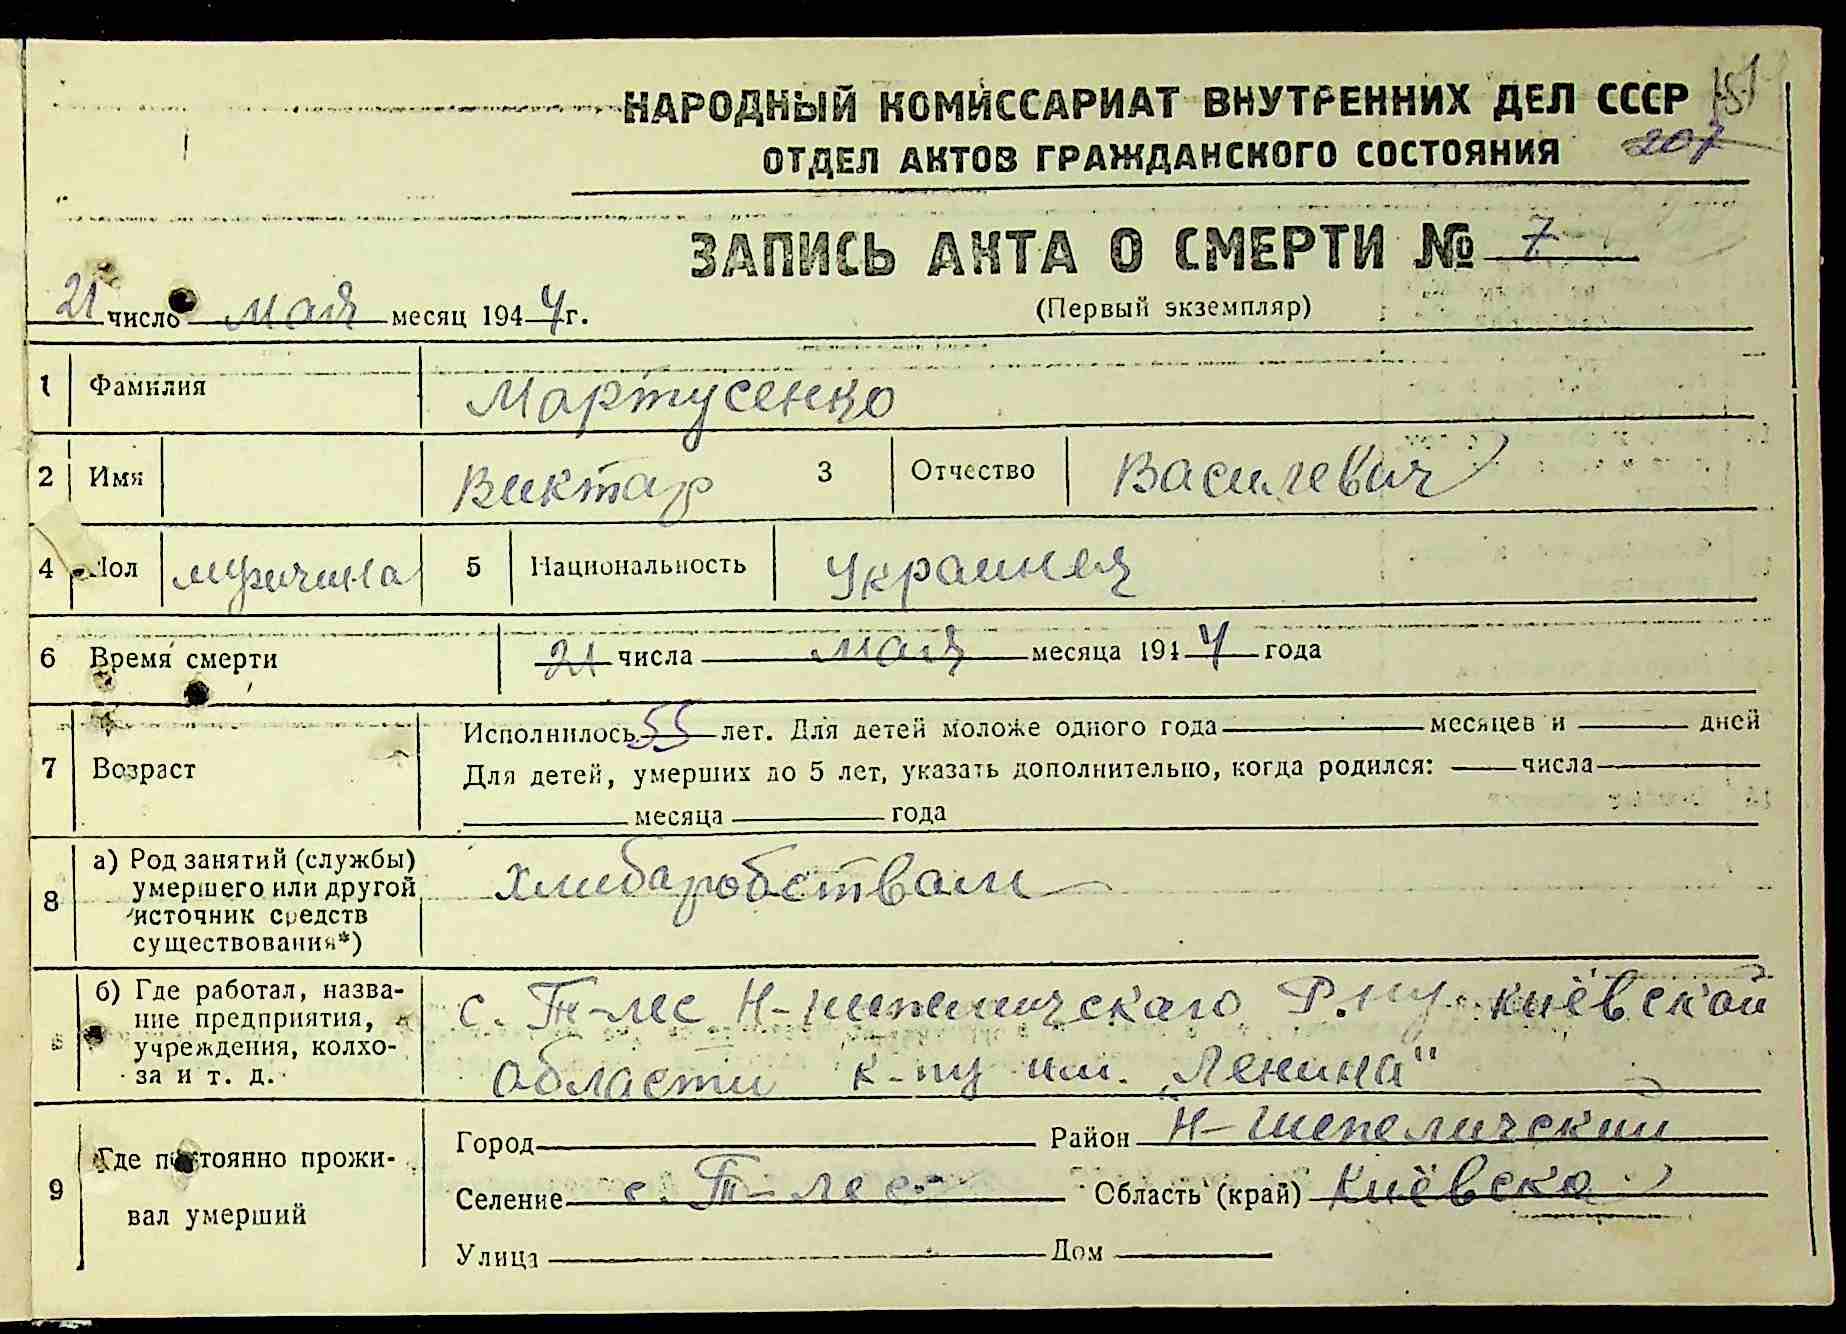 НАРОДНЫЙ КОМИССАРИАТ ВНУТРЕННИХ ДЕЛ СССР
ОТДЕЛ АКТОВ ГРАЖДАНСКОГО СОСТОЯНИЯ 207
ЗАПИСЬ АКТА О СМЕРТИ № 7
21 число мая месяц 1944 г. (Первый экземпляр)
1 Фамилия Мартусенко
2 Имя Виктар 3 Отчество Василевич
4 Пол мужчина 5 Национальность Украинец
6 Время смерти 21 числа мая месяца 1944 года
7 Возраст Исполнилось 55 лет. Для детей моложе одного года месяцев и дней
Для детей, умерших до 5 лет, указать дополнительно, когда родился: числа
месяца года
8 а) Род занятий (службы) умершего или другой источник средств существования*) Хлибаробствам
б) Где работал, название предприятия, учреждения, колхоза и т. д. с. Т-лес Н-шепеличскаго Р. Киёвской
области к-пу им. „Ленина"
9 Где постоянно проживал умерший Город Район Н-Шепеличский
Селение с. Т-лес Область (край) Киёвска
Улица Дом